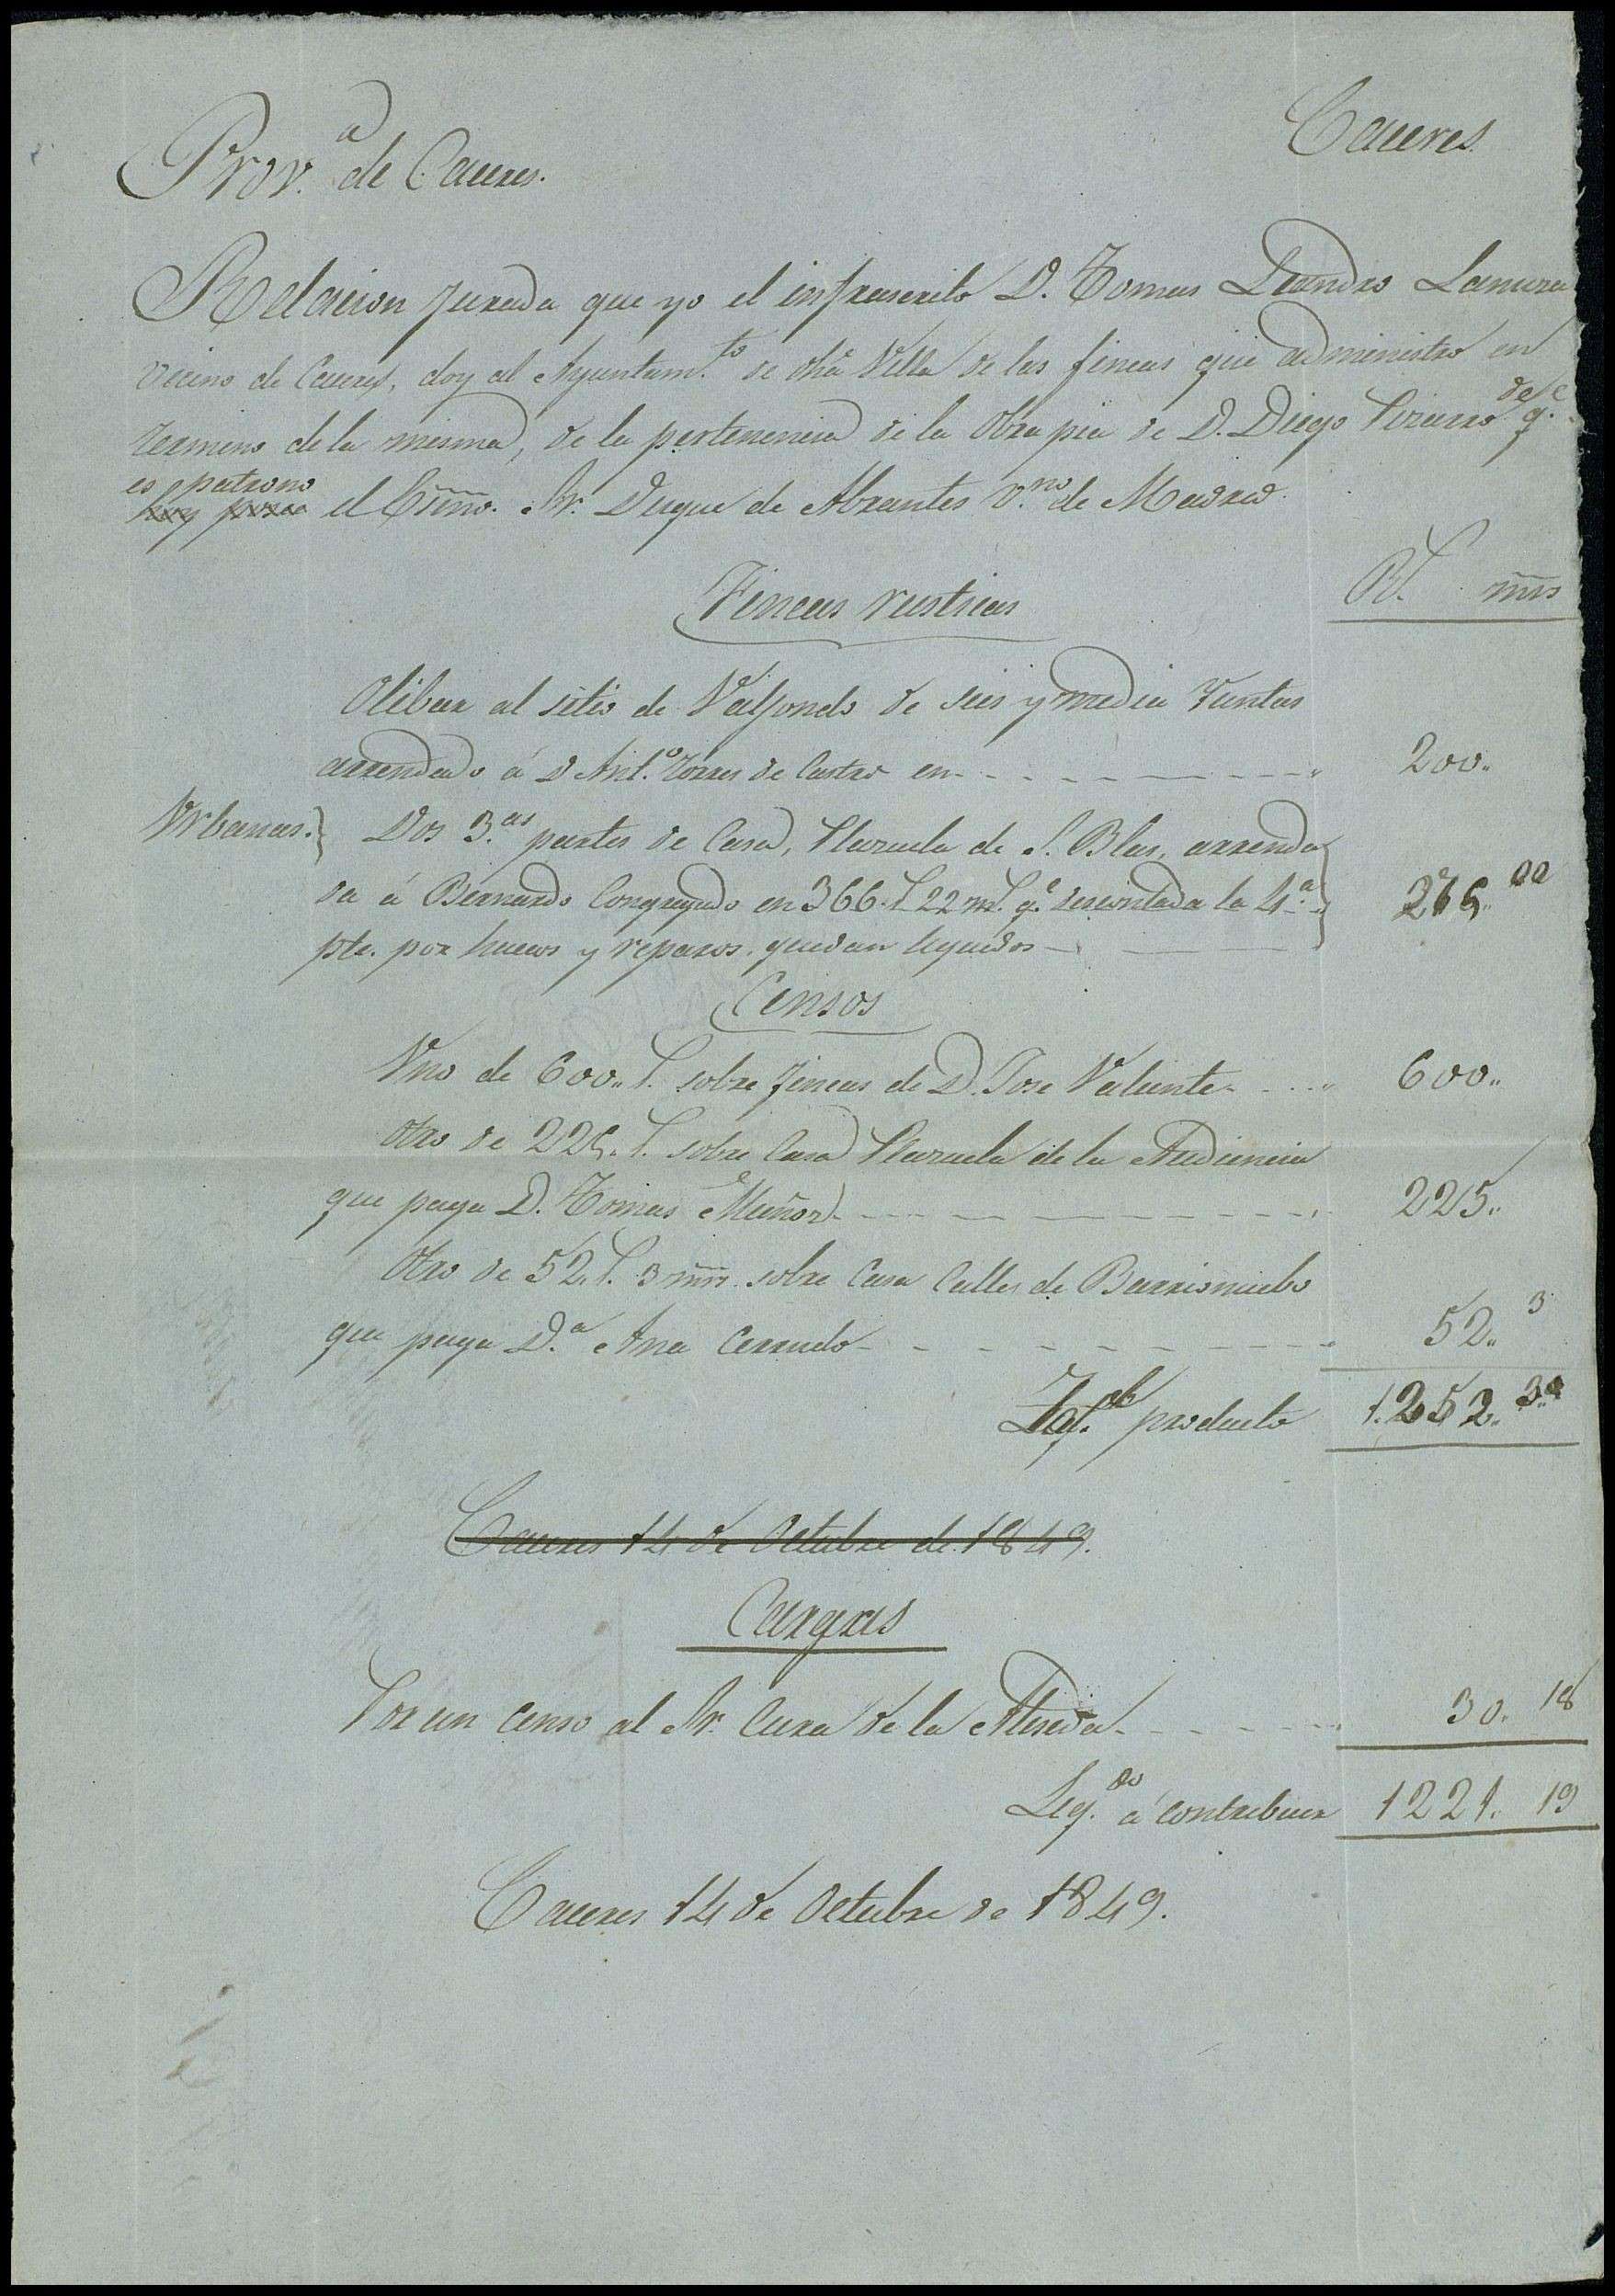 Caceres.
Prov.ª de Caceres.
Relacion jurada que yo el infrascrito D. Tomas Leandro Lamura
vecino de Caceres, doy al Ayuntam.to de dha Villa de las fincas que administro en
termino de la misma, de la pertenencia de la Obra pia de D. Diego Pizarro de q.e
es patrono el Exmo. Sr. Duque de Abrantes v.no de Madrid.
Fincas rusticas
Rs. mrs
Olibar al sitio de Valfondo de seis y media Yuntas
arrendado á D Ant.º Torres de Castro en 200..
Urbanas.} Dos 3.as partes de Casa, Plazuela de S. Blas, arrenda
da á Bernardo Congregado en 366.. rs 22 ms. q.e descontada la 4.ª
pte. por huecos y reparos, quedan liquidos
Censos
Uno de 600.. rs. sobre fincas de D. Jose Valiente 600..
Otro de 225.. rs. sobre Casa Plazuela de la Audiencia
que paga D. Tomas Muñoz 225..
Otro de 52.. rs. 3 mrs. sobre Casa Calle de Barrionuebo
que paga D.ª Ana Cerrudo 52.. 3
producto 1.252..
Caceres 14 de Octubre de 1849.
Cargas
Por un censo al Sr. Cura de la Aliseda 30.. 18
Liq.do á contribuir 1221.. 19
Caceres 14 de Octubre de 1849.